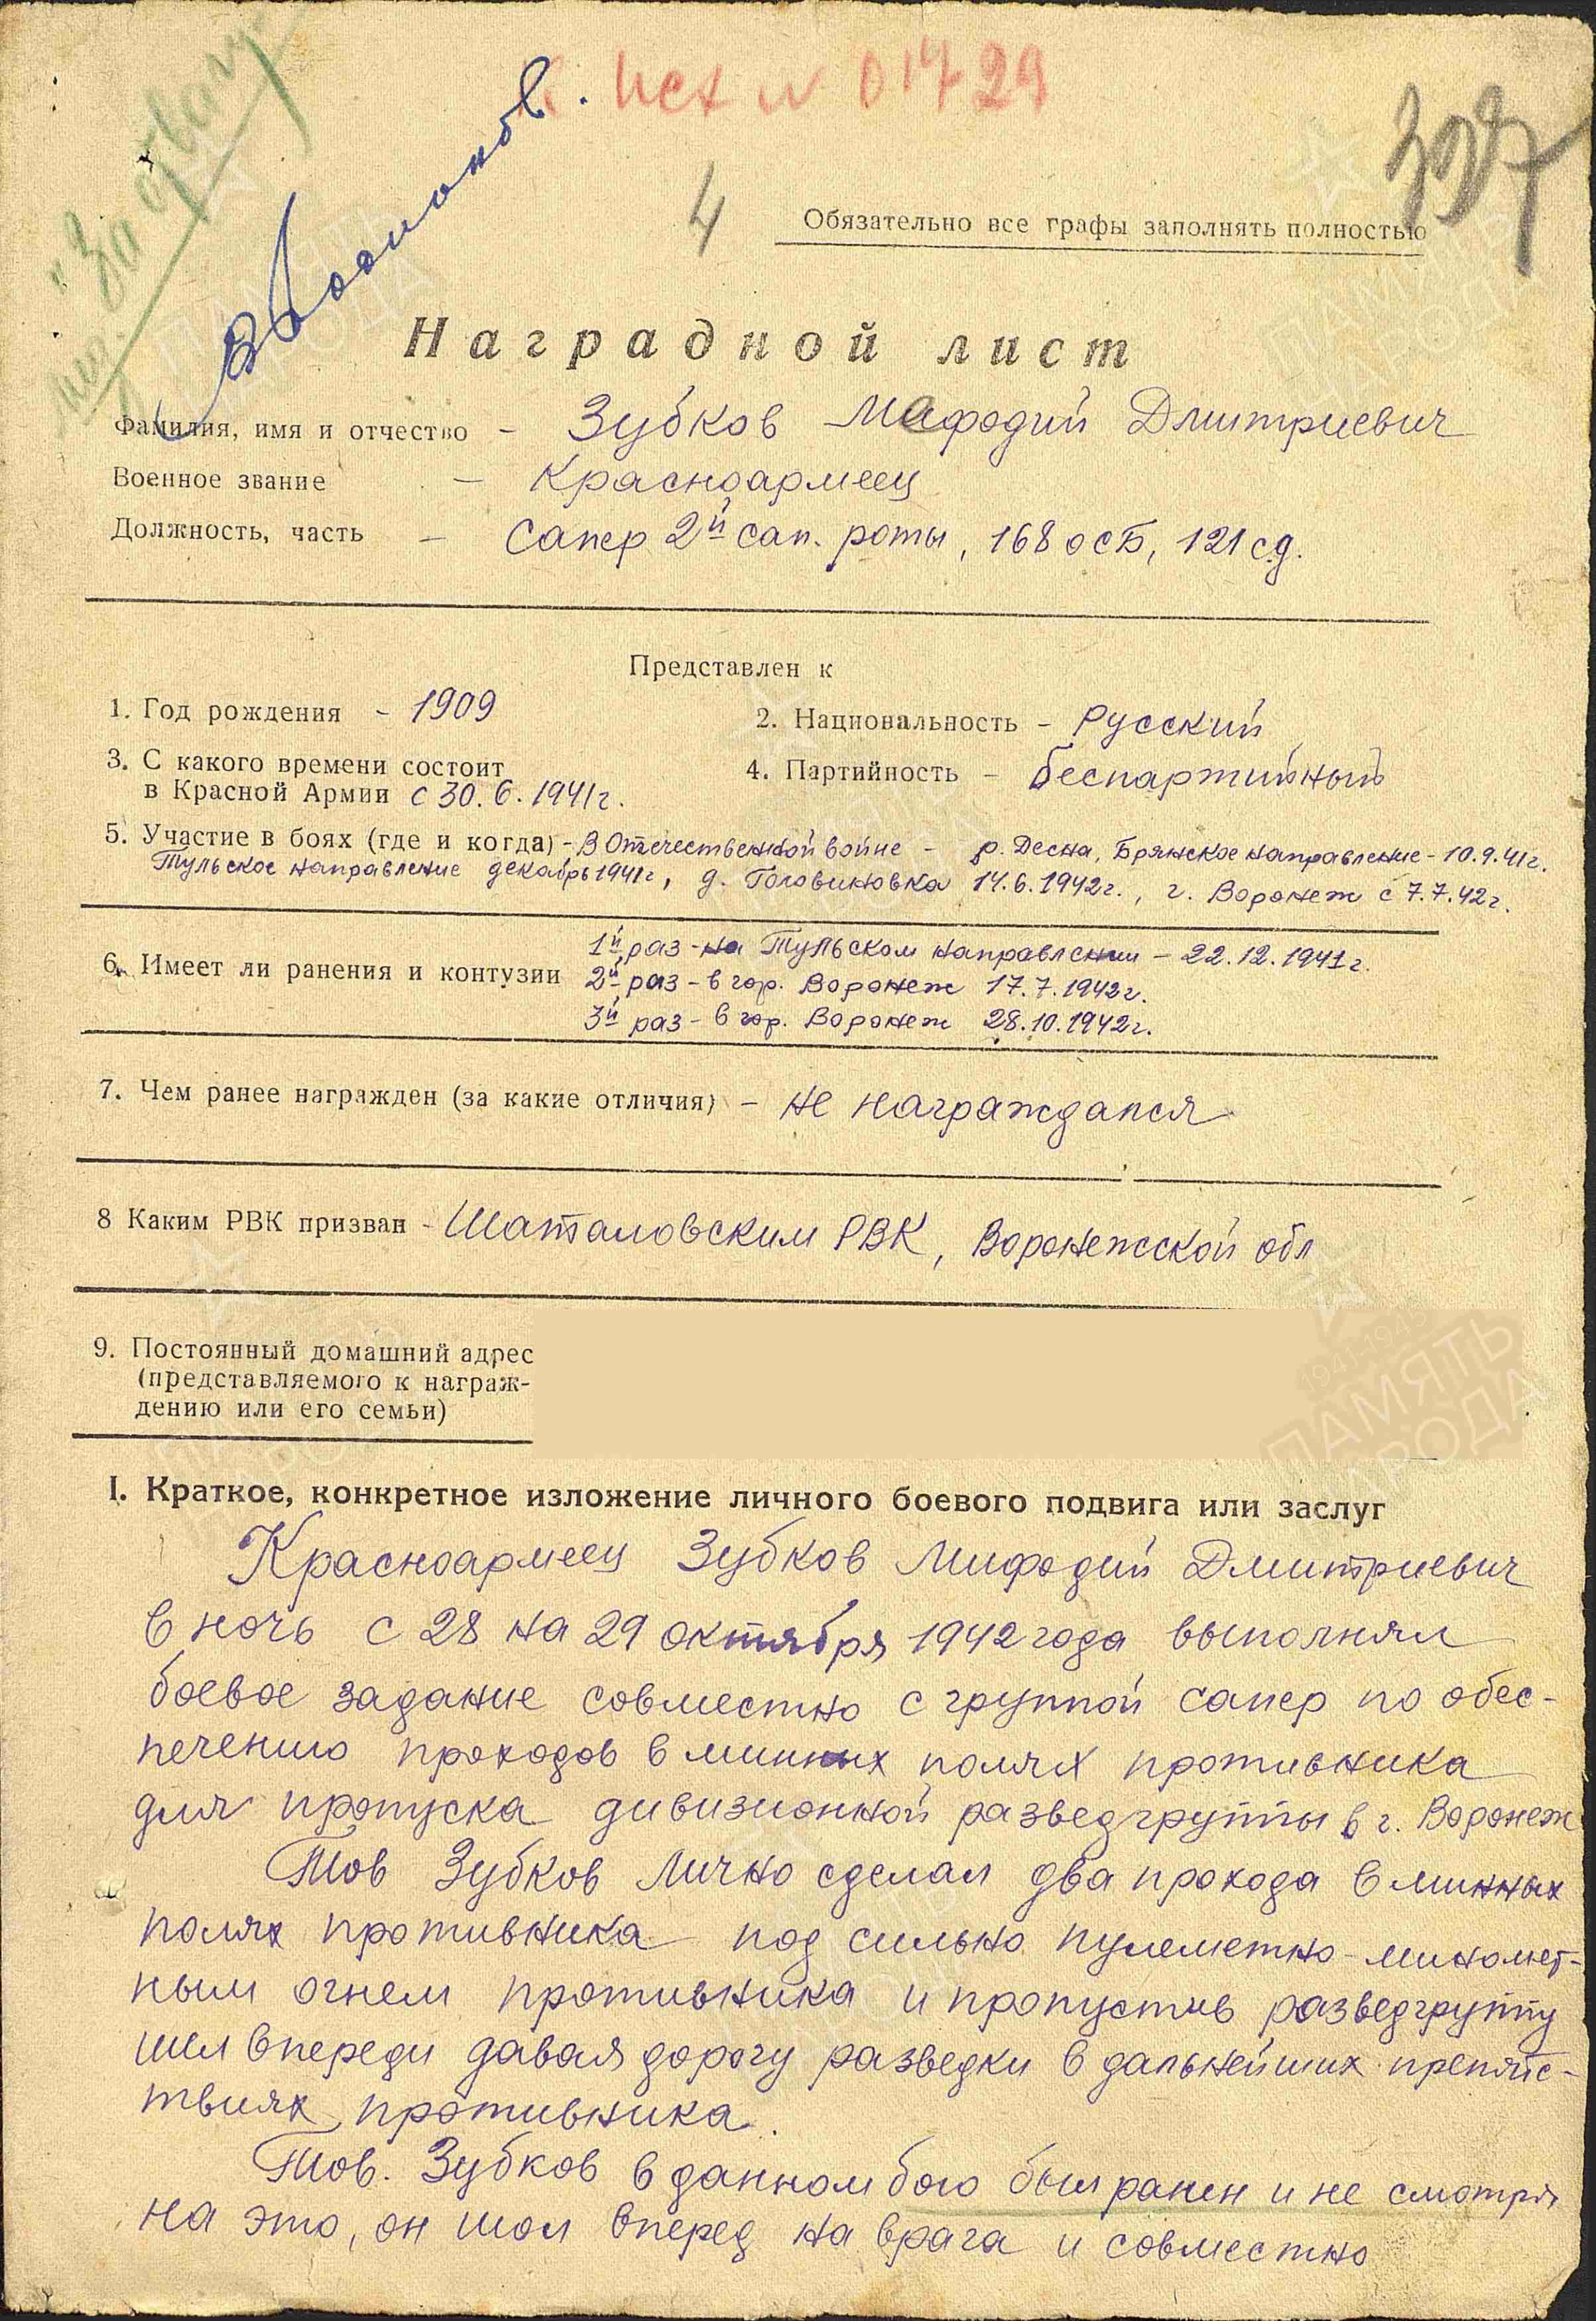 Исх № 01729
"За отвагу"
4
327
Обязательно все графы заполнять полностью
Наградной лист
Фамилия, имя и отчество - Зубков Мефодий Дмитриевич
Военное звание - Красноармеец
Должность, часть - Сапер 2й сап. роты, 168 осБ, 121 сд.
Представлен к
1. Год рождения - 1909
2. Национальность - Русский
3. С какого времени состоит
в Красной Армии с 30.6.1941г.
4. Партийность - беспартийный
5. Участие в боях (где и когда) - В Отечественной войне - р. Десна, Брянское направление - 10.9.41г.
Тульское направление декабрь 1941г, д. Головиновка 14.6.1942г., г. Воронеж с 7.7.42г.
6. Имеет ли ранения и контузии
1й раз - на Тульском направлении - 22.12.1941г.
2й раз - в гор. Воронеж 17.7.1942г.
3й раз - в гор. Воронеж 28.10.1942г.
7. Чем ранее награжден (за какие отличия) - не награждался
8 Каким РВК призван - Шаталовским РВК, Воронежской обл
9. Постоянный домашний адрес
(представляемого к награж-
дению или его семьи)
1941-1945
ПАМЯТЬ
НАРОДА
I. Краткое, конкретное изложение личного боевого подвига или заслуг
Красноармеец Зубков Мифодий Дмитриевич
в ночь с 28 на 29 октября 1942 года выполнял
боевое задание совместно с группой сапер по обес-
печению проходов в минных полях противника
для пропуска дивизионной разведгруппы в г. Воронеж
Тов Зубков лично сделал два прохода в минных
полях противника под сильно пулеметно-миномет-
ным огнем противника и пропустив разведгруппу
шел впереди давая дорогу разведки в дальнейших препятс-
твиях противника.
Тов. Зубков в данном бою был ранен и не смотря
на это, он шол вперед на врага и совместно